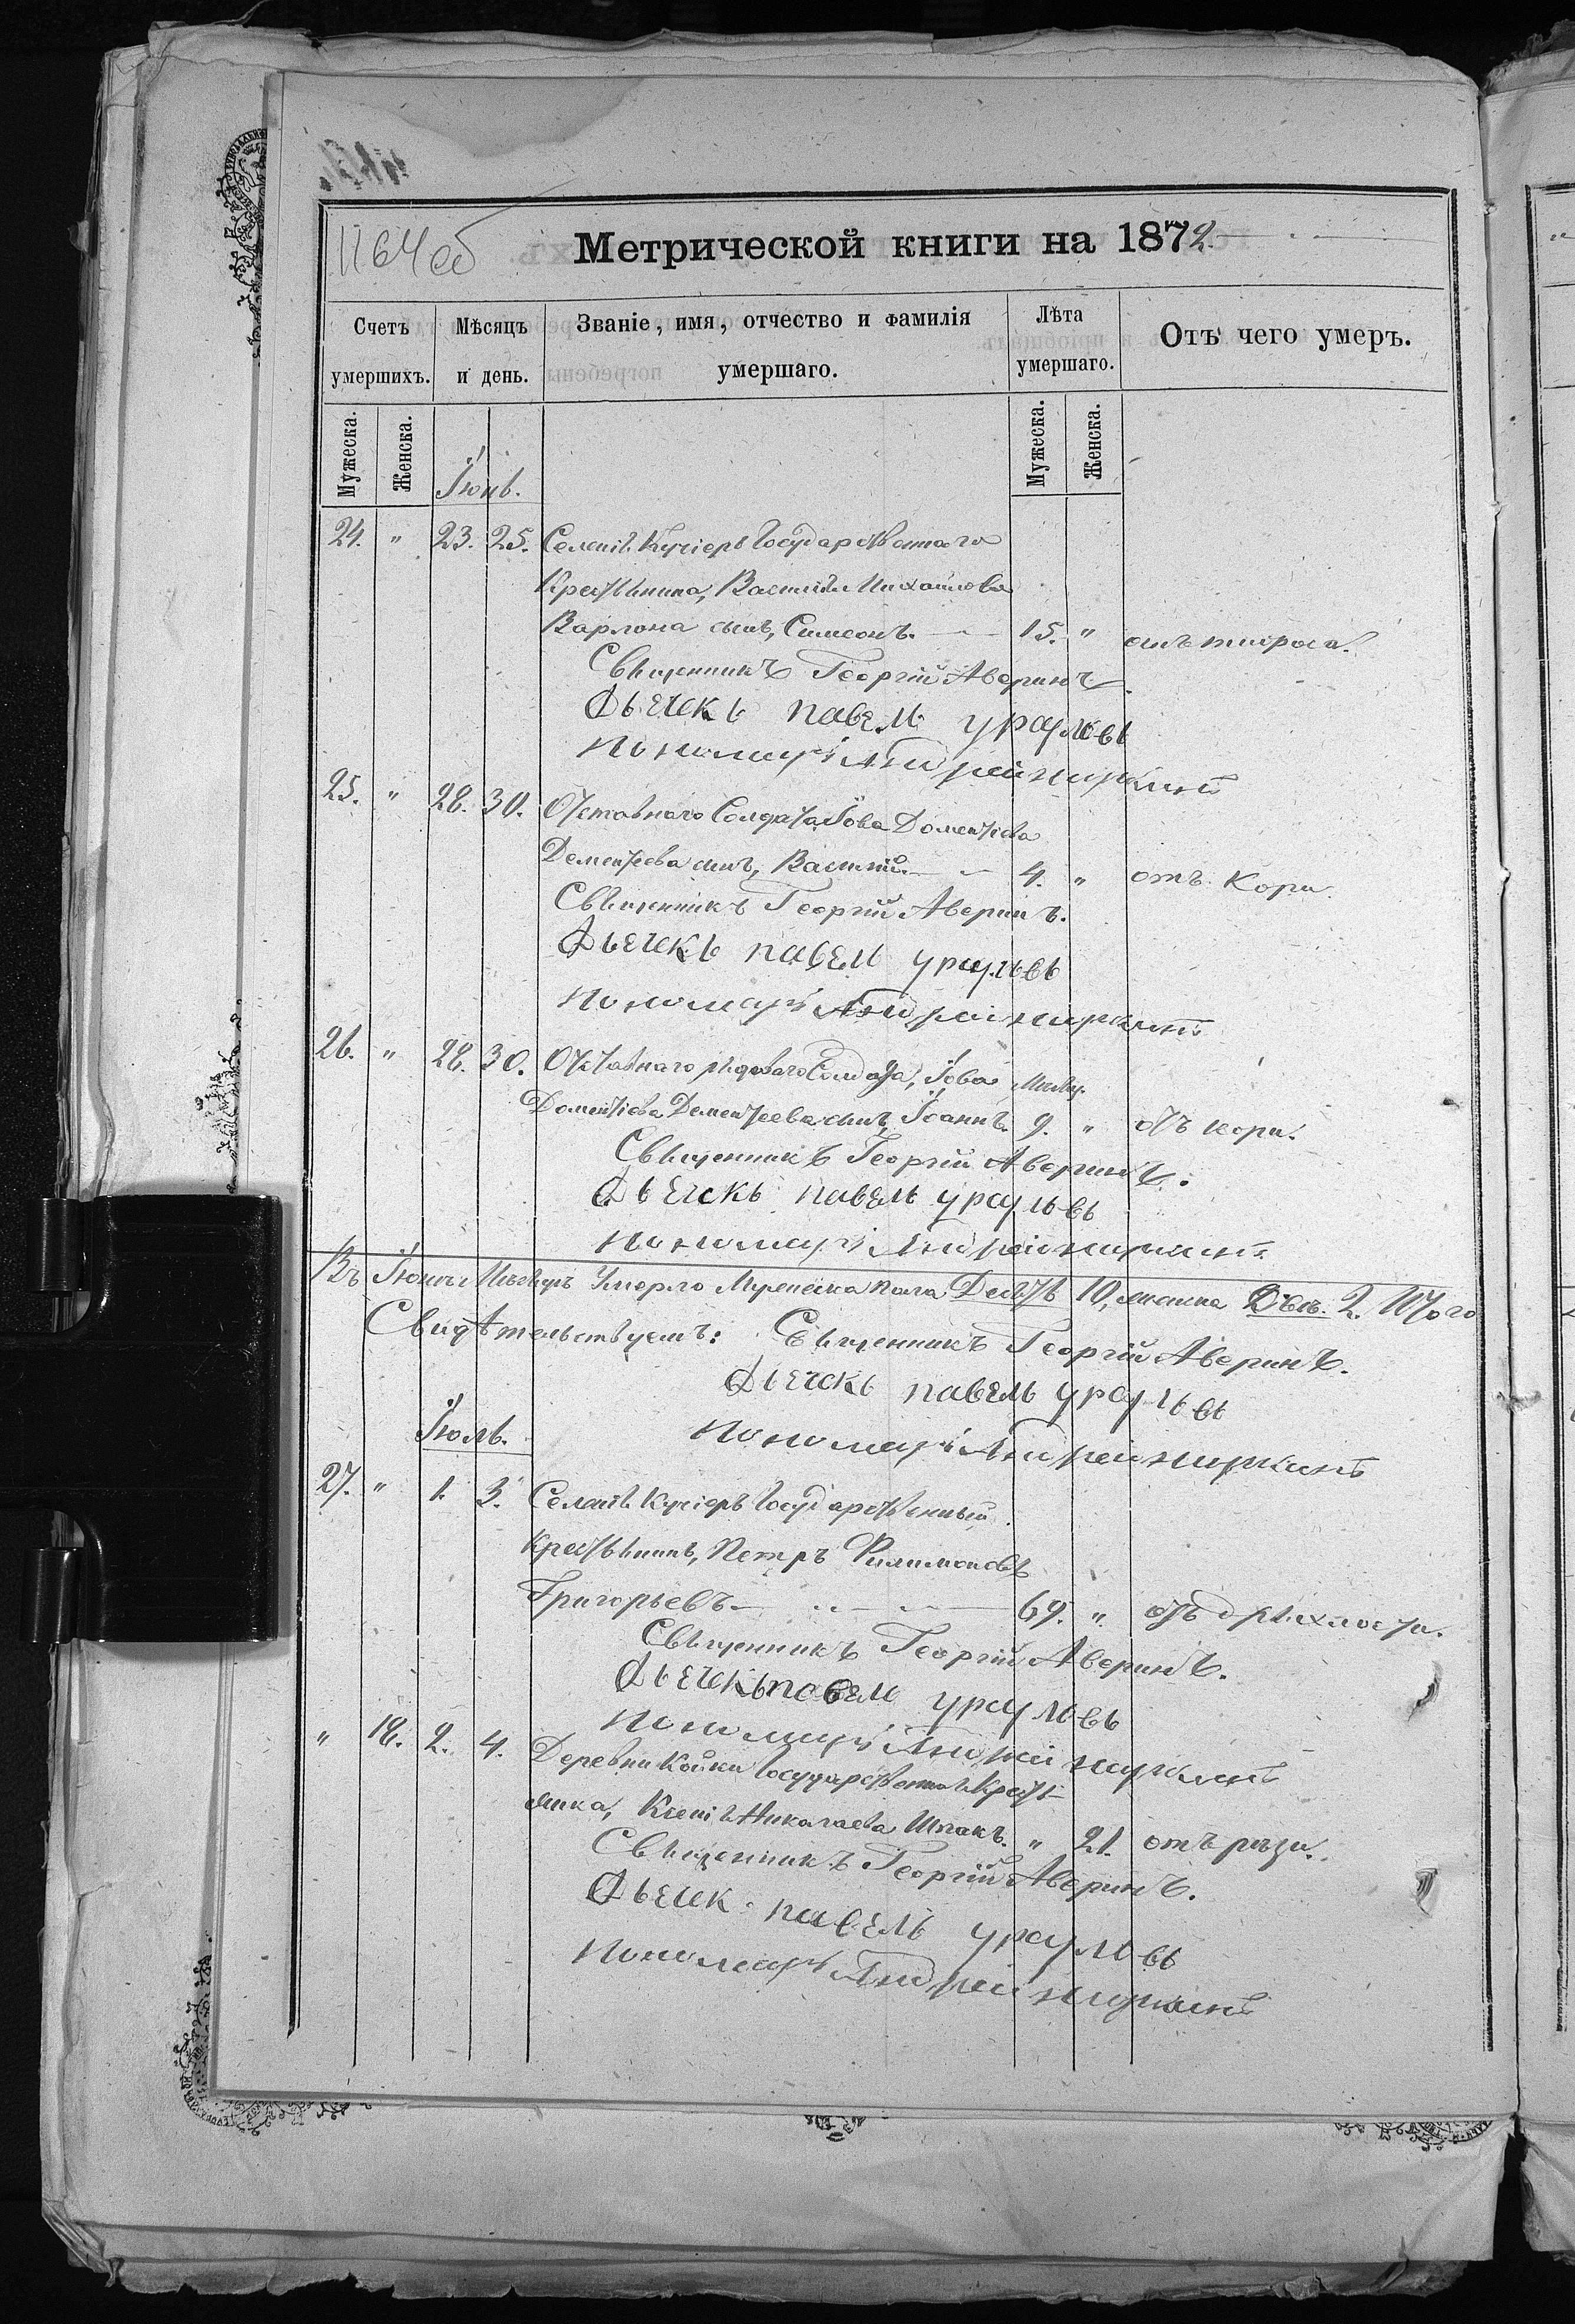 1164об
Метрической книги на 1872.
Счетъ умершихъ.
Мѣсяцъ и день.
Званіе, имя, отчество и фамилія умершаго.
Лѣта умершаго.
Отъ чего умеръ.
Мужеска.
Женска.
Мужеска.
Женска.
Іюнь.
24. " 23. 25. Селенія Кучіеръ Государственнаго
Крестьянина, Василія Михайлова
Варлона сынъ, Симеонъ. 15. "
Священникъ Георгій Аверинъ.
Дьячекъ Павелъ Ураулъвъ
Пономарь Андрей
25. " 28. 30. Отставнаго Солдата Іова Доментіева
Дементьева сынъ, Василій. 4. " отъ Кори.
Священникъ Георгій Аверинъ.
Дьячекъ Павелъ Ураулъвъ
Пономарь Андрей
26. " 28. 30. Отставнаго рядоваго Солдата, Іова Мѣсяц.
Доментіева Дементьева сынъ, Іоаннъ. 9. " отъ кори.
Священникъ Георгій Аверинъ.
Дьячекъ Павелъ Ураулъвъ
Пономарь Андрей
Въ Іюнѣ Мѣсяцѣ Умерло Мужеска пола Десять 10, женска Двѣ. 2. Итого
Свидѣтельствуемъ: Священникъ Георгій Аверинъ.
Дьячекъ Павелъ Ураулъвъ
Пономарь Андрей
Іюль.
27. " 1. 3. Селенія Кучіеръ Государственный
Крестьянинъ, Петръ Филимоновъ
Григорьевъ 69. " отъ дряхлости.
Священникъ Георгій Аверинъ.
Дьячекъ Павелъ Ураулъвъ
Пономарь Андрей
" 18. 2. 4. Деревни Койки Государственная Кресть-
янка, Ксенія Николаева Шпакъ. " 21. отъ рѣзи.
Священникъ Георгій Аверинъ.
Дьячек Павелъ Ураулъвъ
Пономарь Андрей